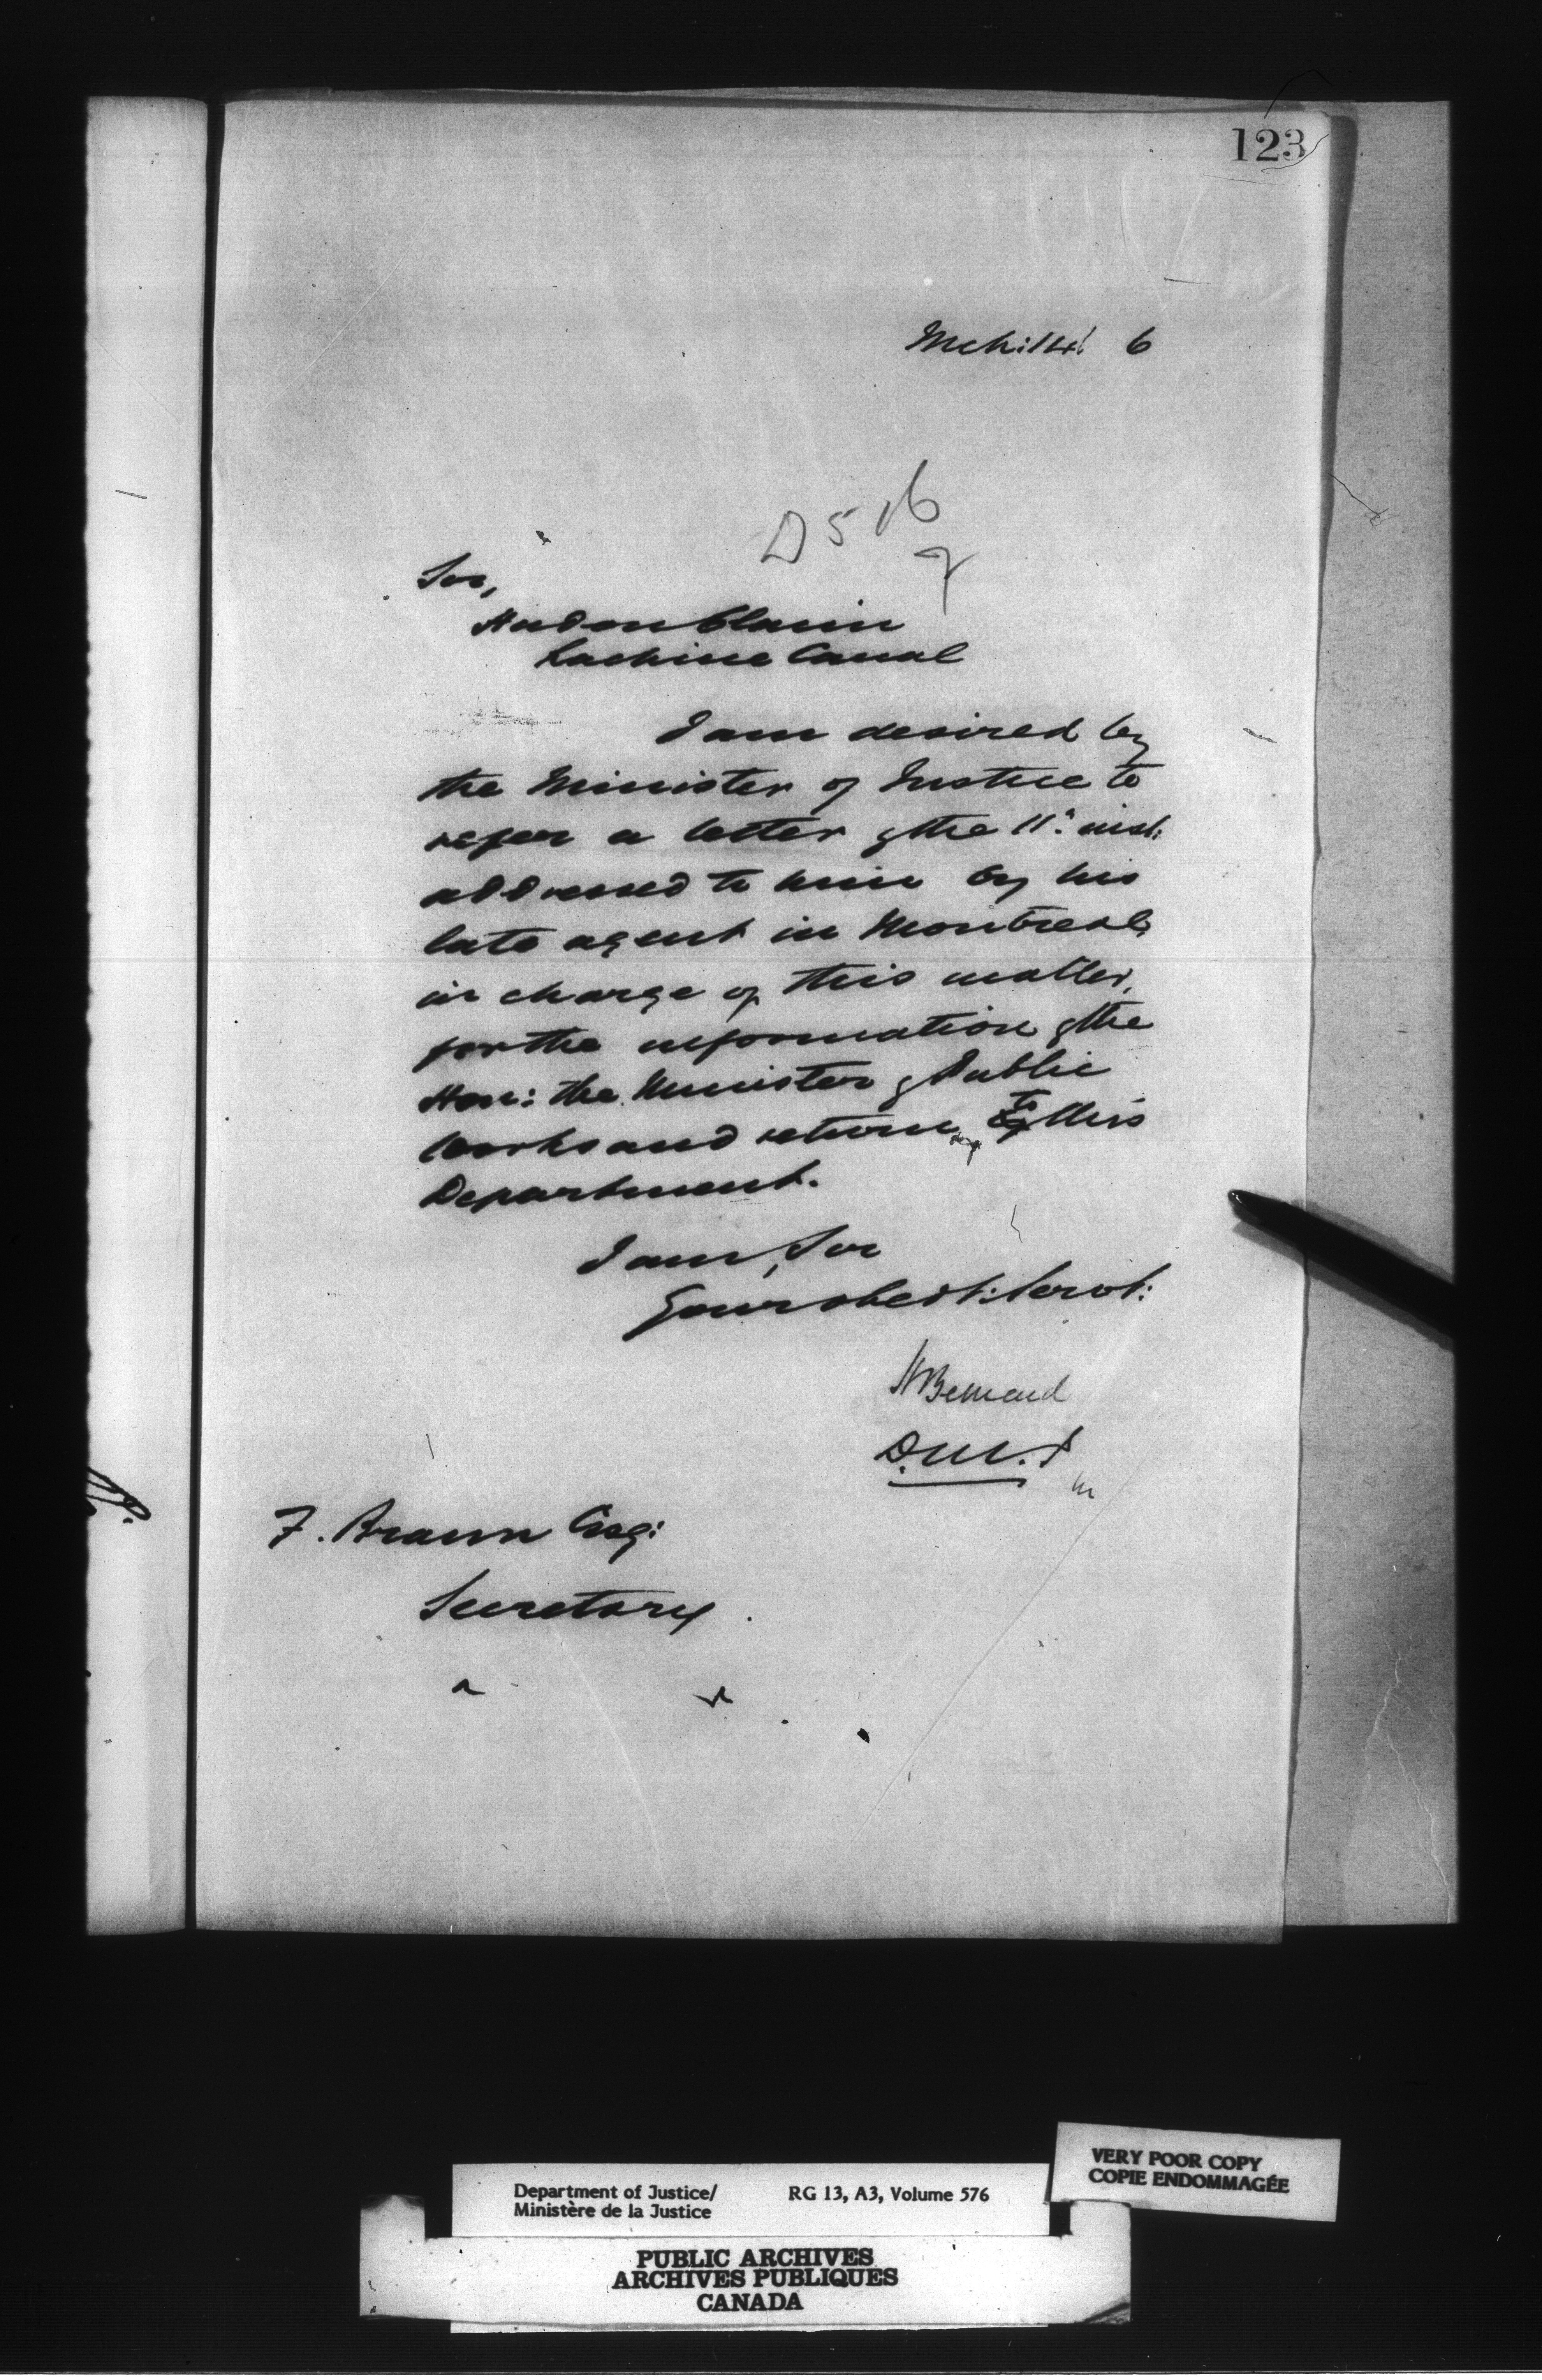 123
Mch: 14. 6
D 516
Sir,
Hudon Claim
Lachine Canal
I am desired by
the Minister of Justice to
refer a letter of the 11th inst:
addressed to him by his
late agent in Montreal,
in charge of this matter,
for the information of the
Hon: the Minister of Public
Works and return to this
Department.
I am, Sir
Your obedt: Servt:
H Bernard
D.M.J
F. Braun Esq:
Secretary.
VERY POOR COPY
COPIE ENDOMMAGÉE
Department of Justice/ RG 13, A3, Volume 576
Ministère de la Justice
PUBLIC ARCHIVES
ARCHIVES PUBLIQUES
CANADA